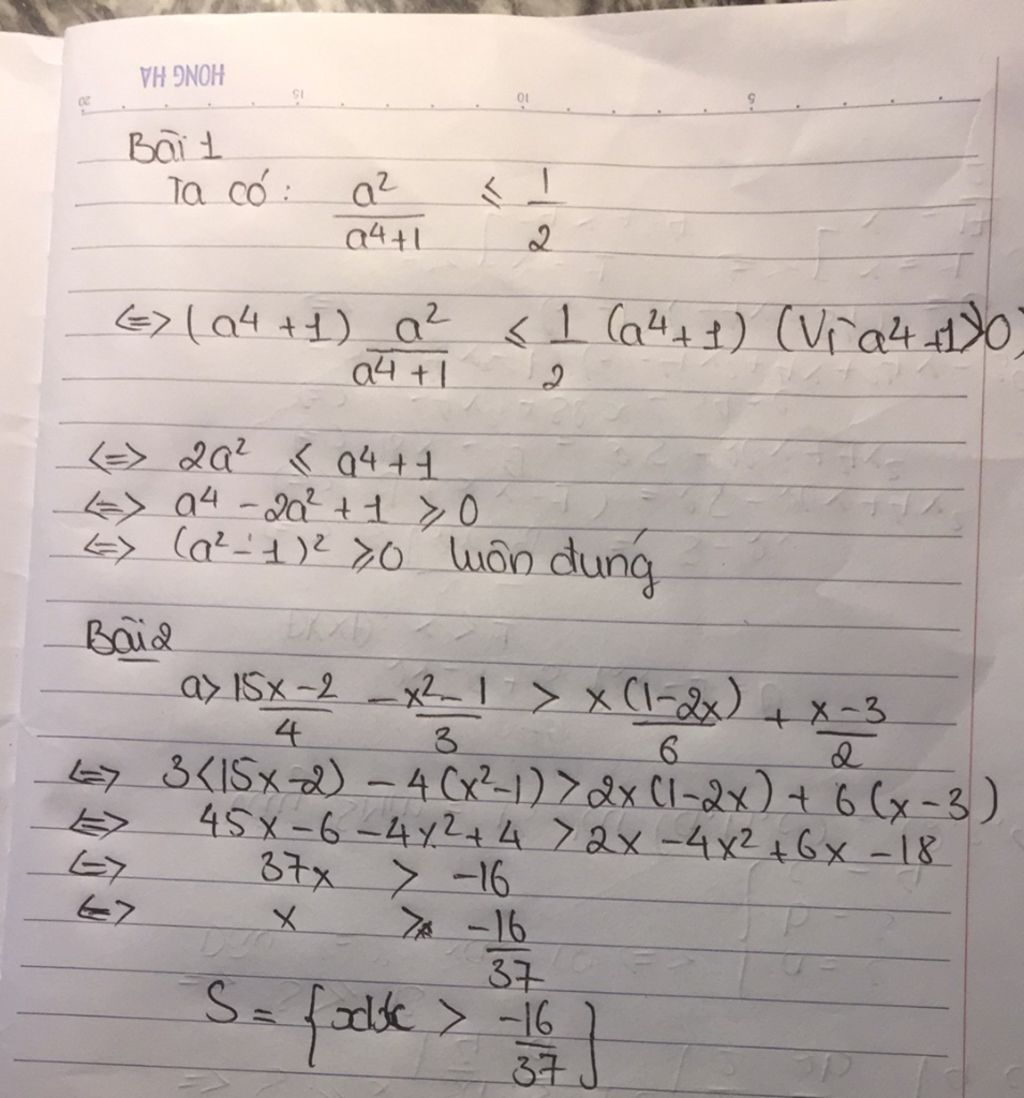 HONG HA
20 15 10 5
Bài 1
Ta có: a²/(a⁴+1) ≤ 1/2
<=> (a⁴+1) a²/(a⁴+1) ≤ 1/2 (a⁴+1) (Vì a⁴+1>0)
<=> 2a² ≤ a⁴+1
<=> a⁴ - 2a² + 1 ≥ 0
<=> (a² - 1)² ≥ 0 luôn đúng
Bài 2
a> (15x-2)/4 - (x²-1)/3 > x(1-2x)/6 + (x-3)/2
<=> 3(15x-2) - 4(x²-1) > 2x(1-2x) + 6(x-3)
<=> 45x - 6 - 4x² + 4 > 2x - 4x² + 6x - 18
<=> 37x > -16
<=> x > -16/37
S = { > -16/37 }